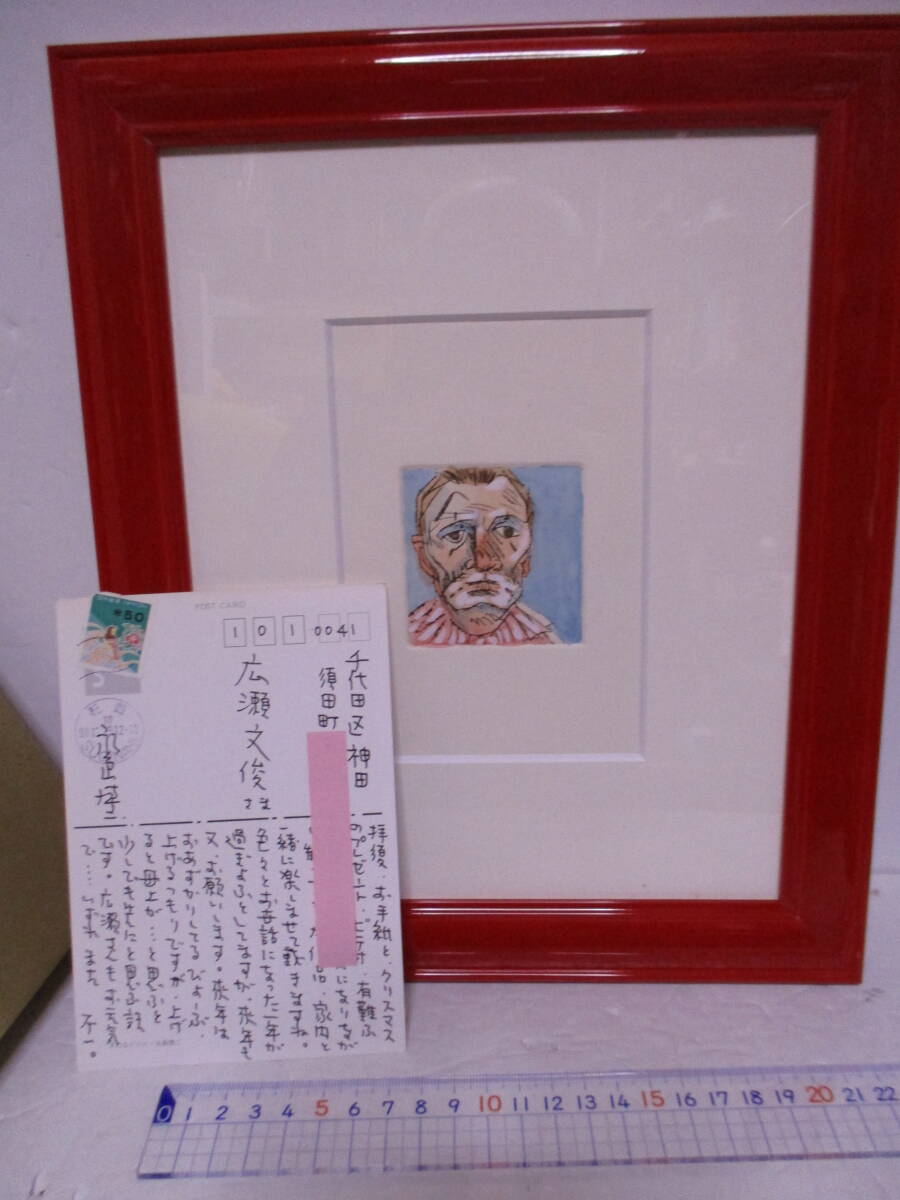 POST CARD
50
101 0041
千代田区神田
須田町
広瀬文俊さま
拝復、お手紙と、クリスマス
のプレゼント、有難ふ
になりながら
家内と
一緒に楽しませて戴きますね。
色々とお世話になった一年が
過ぎよふとしてますが、来年も
又、お願いします。来年は
おあずかりしてるびょーぶ、
上げるつもりですが、上げ
ると母上が…と思ふと
少しでも先にと思ふ訳
です。広瀬さんもお元気
で…いずれまた 不一。
0 1 2 3 4 5 6 7 8 9 10 11 12 13 14 15 16 17 18 19 20 21 22